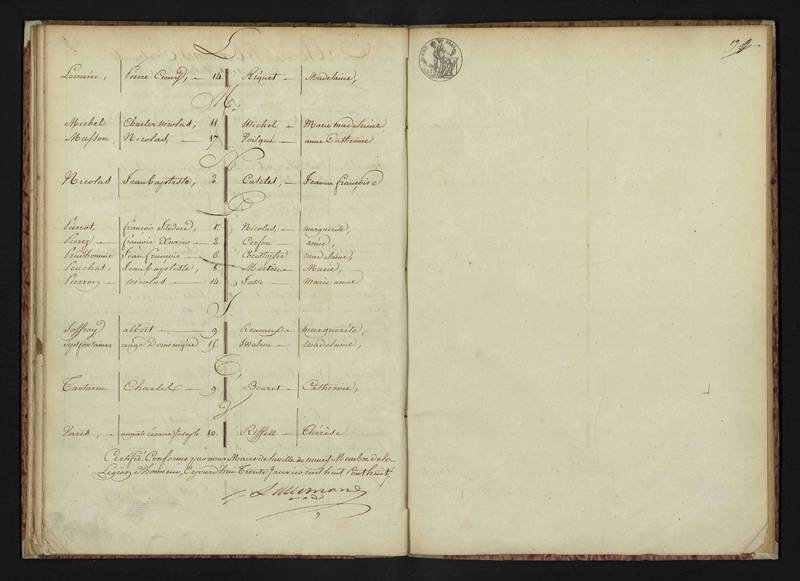 L.
Lorrain, Pierre — 14. Riquet — Madelaine,
M.
Michel Charles Nicolas, 11 Michel — Marie madelaine
Musson Nicolas, — 17 anne Catherine
N.
Nicolas Jean Baptiste, 2 Catelet, — Jeanne françoise
P.
Pierrot, françois Isidore, 1. Nicolas, — marguerite,
Perez — françois Xavier — 2. — anne,
Prudhomme Jean françois — 6. Christophe madelaine,
Pouchat, Jean Baptiste, 8. Martin — Marie,
Pierron — nicolas — 14. Josse — marie anne
S.
albert — 9. Renaux — marguerite,
Dominique 15. Madelaine,
T.
Tartarin Charles — 9 Bouret — Catherine,
auguste Joseph 10. Riffel — Thérèse
Certifié Conforme par nous Maire de la ville de Membre de la
Légion d'honneur, Cejourd'hui Trente Janvier mil huit Cent huit
17